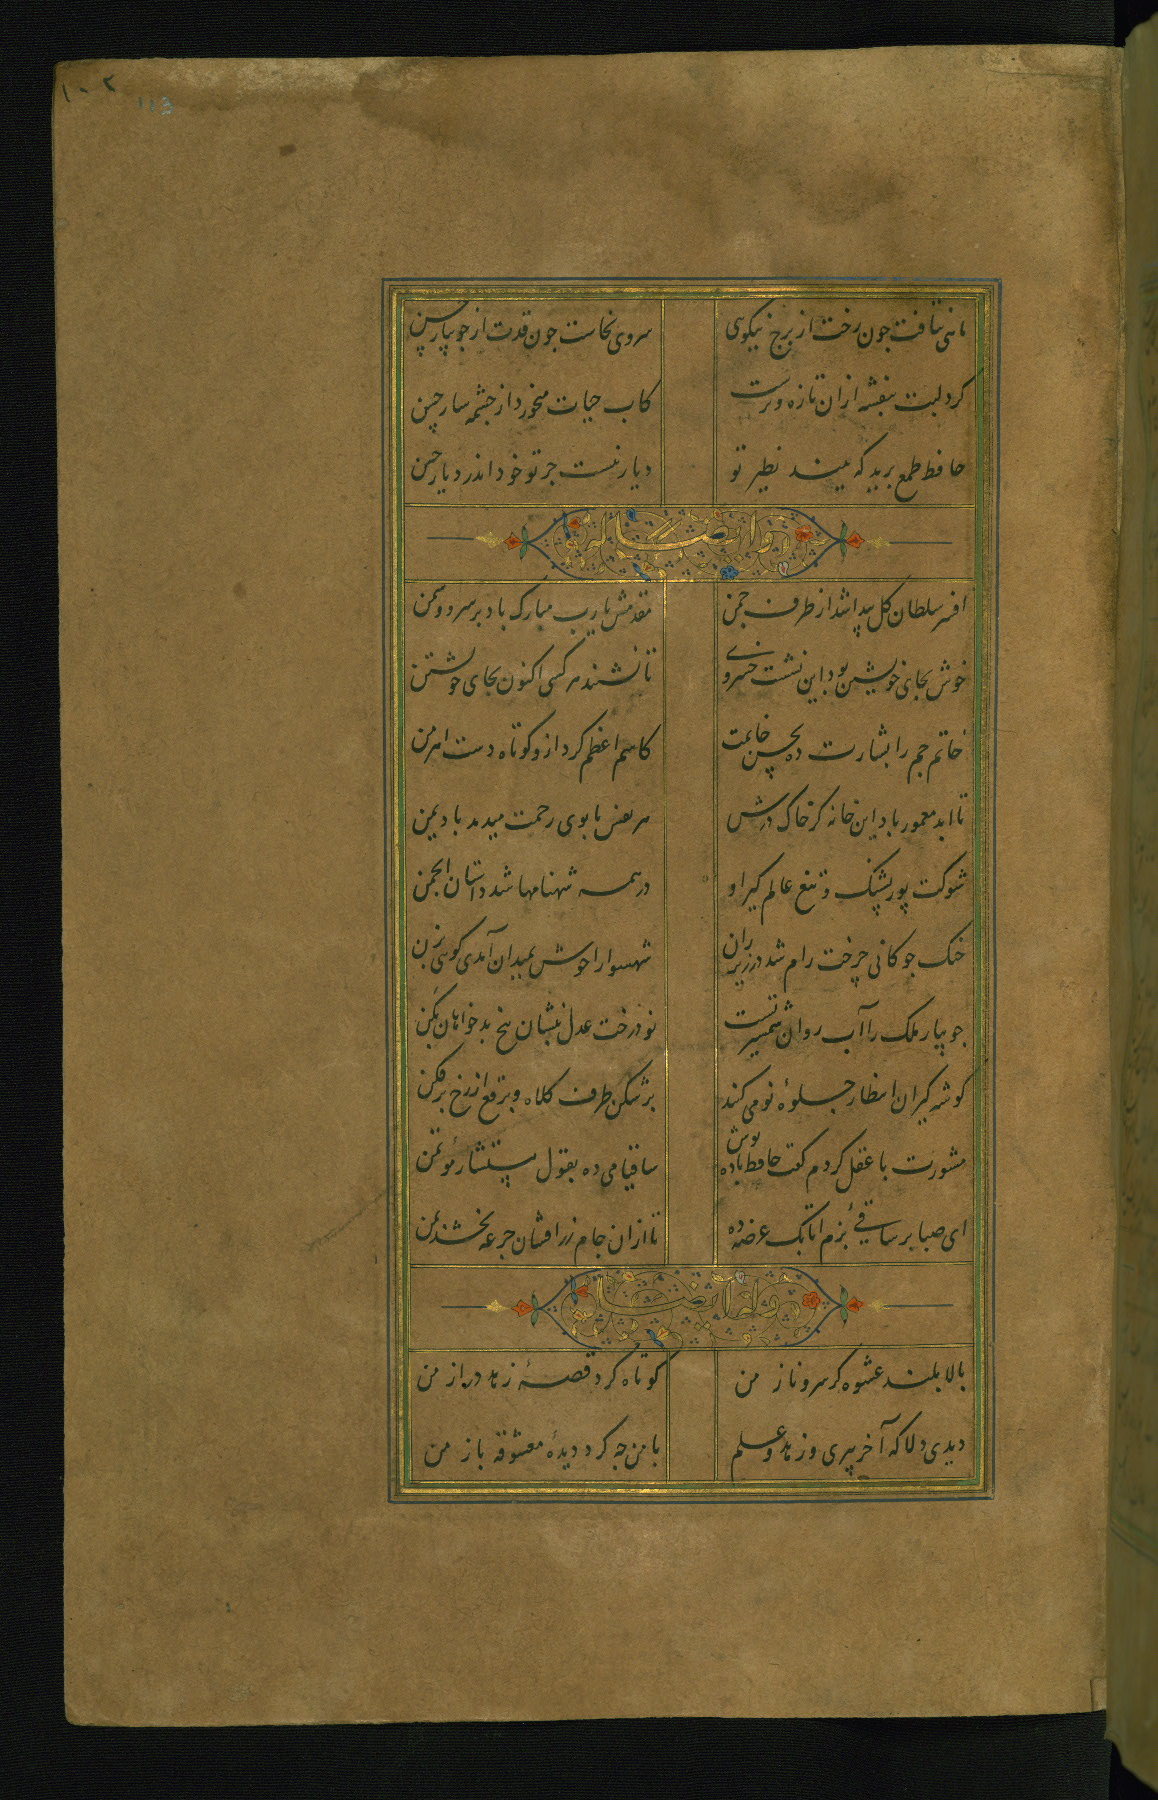 ۱۰۲
113
ماهی نتافت چون رخت از برج نیکویی سروی نخاست چون قدت از جویبار حسن
کرد لبت بنفشه از ان تازه و ترست کاب حیات میخورد از چشمه سار حسن
حافظ طمع برید که بیند نظیر تو دیار نیست جز تو خود اندر دیار حسن
و ایضا له
افسر سلطان کل پیدا شد از طرف چمن مقدمش یا رب مبارک باد بر سرو و سمن
خوش بجای خویشتن بود این نشست خسروی تا نشیند هر کسی اکنون بجای خویشتن
خاتم جم را بشارت ده بحسن خاتمت کاسم اعظم کرد ازو کوتاه دست اهرمن
تا ابد معمور باد این خانه کز خاک درش هر نفس با بوی رحمت میدمد باد یمن
شوکت پور پشنک و تیغ عالم کیر او در همه شهنامها شد داستان انجمن
خنک چوکانی چرخت رام شد در زیر ران شهسوارا خوش بمیدان آمدی کویی بزن
جویبار ملک را آب روان شمشیر تست تو درخت عدل بنشان بیخ بدخواهان بکن
کوشه کیران انتظار جلوهٔ تو می کنند بر شکن طرف کلاه و برقع از رخ برفکن
مشورت با عقل کردم کفت حافظ باده بنوش ساقیا می ده بقول مستشار مؤتمن
ای صبا بر ساقیٔ بزم اتابک عرضه ده تا از ان جام زر افشان جرعه بخشد بمن
وله ایضا
بالا بلند عشوه کر سرو ناز من کوتاه کرد قصهٔ زهد دراز من
دیدی دلا که آخر پیری و زهد و علم با من چه کرد دیدهٔ معشوقه باز من